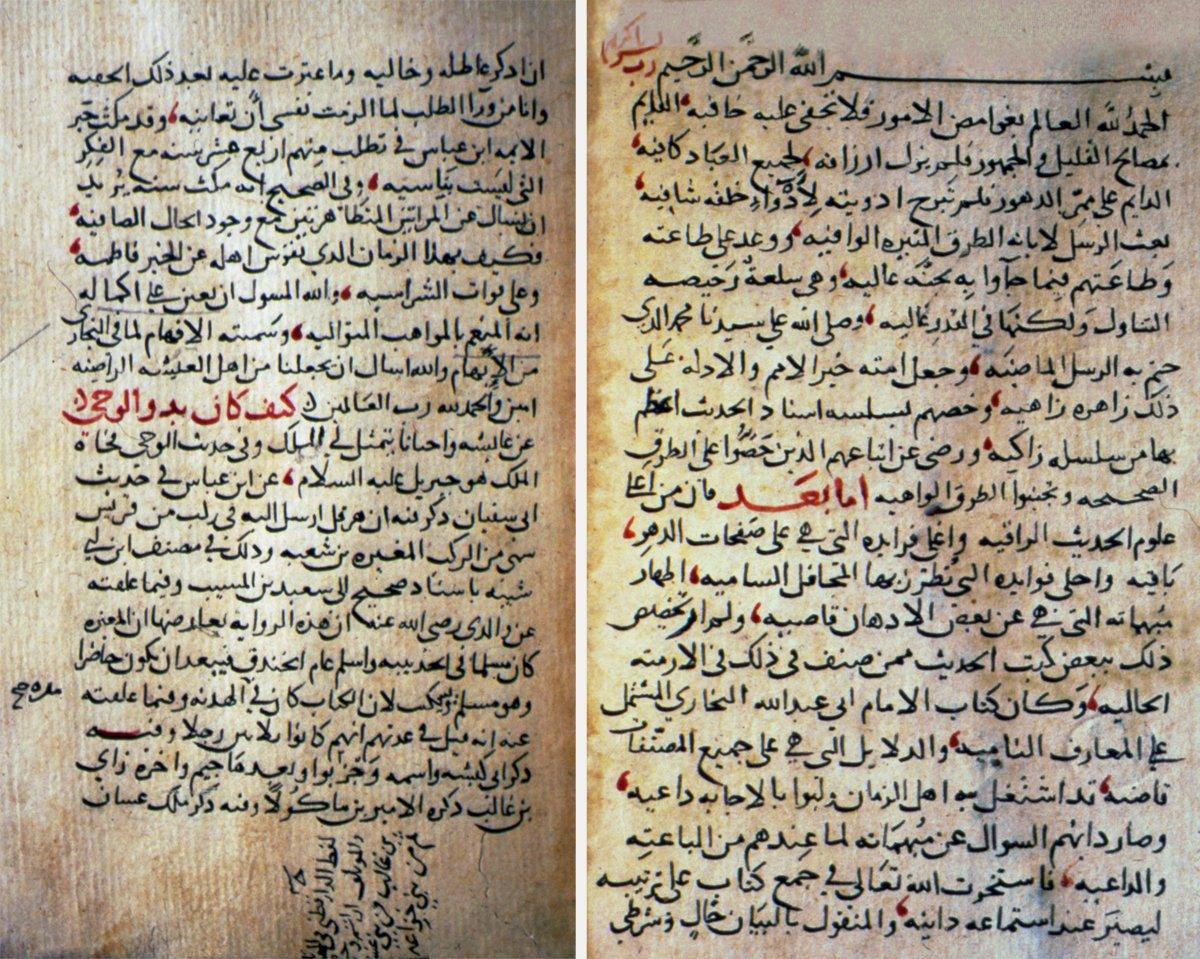 بسم الله الرحمن الرحيم رب يسر
الحمد لله العالم بغوامض الامور فلا تخفى عليه خافيه العليم
بمصالح القليل والجمهور فلم يزل ارزاقه لجميع العباد كافيه
الدايم على ممر الدهور فلم تبرح ادويته لادواء خلقه شافيه
بعث الرسل لابانه الطرق المنيره الوافيه ووعد على طاعته
وطاعتهم فيما جآوا به بجنة عاليه وهي سلعة رخيصه
التناول ولكنها في القدر غاليه وصلى الله على سيدنا محمد الذي
ختم به الرسل الماضيه وجعل امته خير الامم والادله على
ذلك زاهره زاهيه وخصهم بسلسله اسناد الحديث اعظم
بها من سلسله زاكيه ورضى عن اتباعهم الذين حضوا على الطرق
الصحيحه وتجنبوا الطرق الواهيه اما بعد فان من اعلا
علوم الحديث الراقيه واغلى فرايده التى هي على صفحات الدهر
باقيه واحلى فوايده التى تطرز بها المحافل الساميه اظهار
مبهماته التى هي عن بعض الاذهان قاصيه ولم ار تخصيص
ذلك ببعض كتب الحديث ممن صنف في ذلك في الازمنه
الخاليه وكان كتاب الامام ابى عبد الله البخاري المشتمل
على المعارف الناميه والدلايل التى هي على جميع المصنفات
قاضيه قد اشتغل به اهل الزمان ولبوا بالاجابه داعيه
وصار دابهم السوال عن مبهماته لما عندهم من الباعثه
والداعيه فاستخرت الله تعالى في جمع كتاب على ترتيبه
ليصير عند استماعه دانيه والمنقول بالبيان حال وشرطي
ان اذكر عاطله وخاليه وما عثرت عليه بعد ذلك الحقه
وانا من ورآ الطلب لما الزمت نفسى ان تعانيه وقد مكث حبر
الامه ابن عباس في تطلب مبهم اربع عشر سنه مع الفكر
التى ليست بناسيه وفى الصحيح انه مكث سنه يريد
ان يسال عن المراتين المتظاهرتين مع وجود الحال الصافيه
فكيف بهذا الزمان الذي نفوس اهله عن الخير فاطمه
وعلى فوات الشر اسيه والله المسول ان يعين على اكماله
انه المنعم بالمواهب المتواليه وسميته الافهام لما في البخار
من الابهام والله اسال ان يجعلنا من اهل العيشه الراضيه
امين والحمد لله رب العالمين كيف كان بدو الوحي
عن عائشه واحيانا يتمثل لي الملك وفى حديث الوحي فجاه
الملك هو جبريل عليه السلام عن ابن عباس في حديث
ابى سفيان ذكر فيه ان هرقل ارسل اليه في ركب من قريش
سمى من الركب المغيره بن شعبه وذلك في مصنف ابن ابي
شيبه باسناد صحيح الى سعيد بن المسيب وفيما علقته
عن والدى رضى الله عنه ان هذه الروايه يعارضها ان المغيره
كان مسلما في الحديبيه واسلم عام الخندق فيبعد ان يكون حاضرا
وهو مسلم لان الكتاب كان في الهدنه وفيما علقته
عنه انه قيل في عدتهم انهم كانوا ثلاثين رجلا وفيه
ذكر ابى كبشه واسمه وجز بواو بعدها جيم واخره زاي
بن غالب ذكره الامير بن ماكولا وفيه ذكر ملك غسان